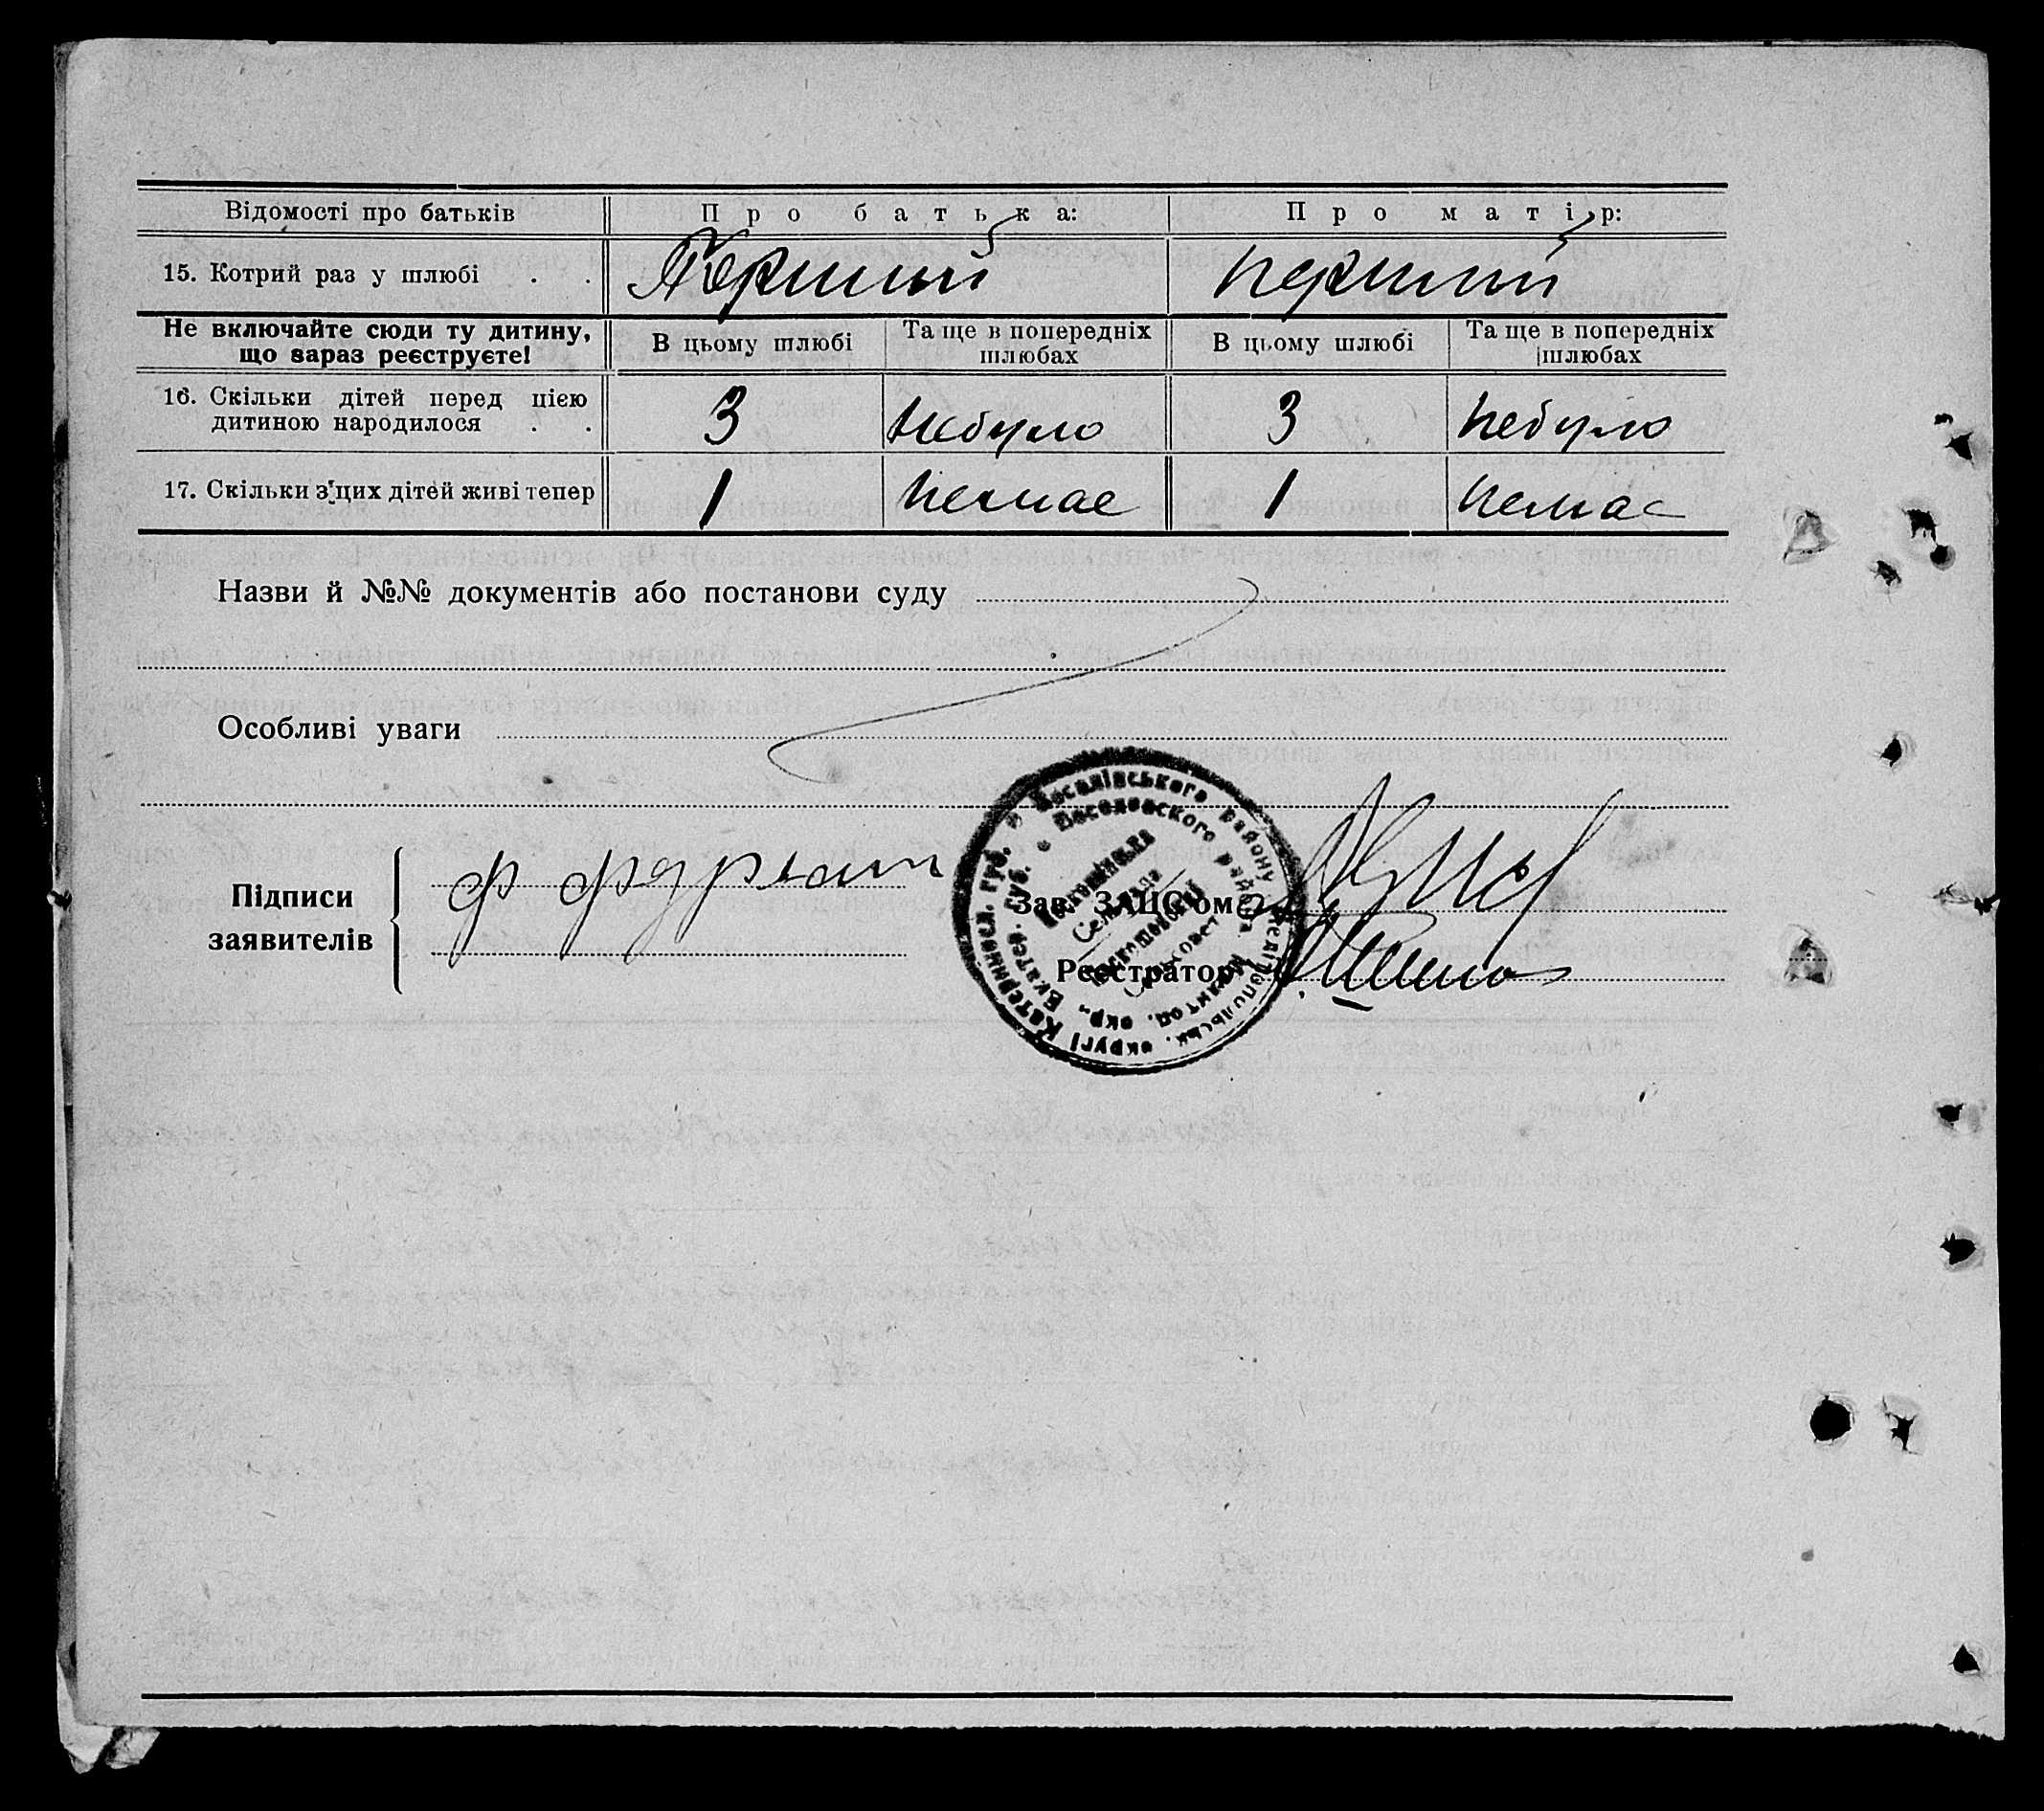 Відомості про батьків Про батька: Про матір:
15. Котрий раз у шлюбі . . Перший перший
Не включайте сюди ту дитину, що зараз реєструєте! В цьому шлюбі Та ще в попередніх шлюбах В цьому шлюбі Та ще в попередніх шлюбах
16. Скільки дітей перед цією дитиною народилося . . 3 небуло 3 небуло
17. Скільки з'цих дітей живі тепер 1 немае 1 немае
Назви й №№ документів або постанови суду
Особливі уваги
Підписи заявителів
Зав. ЗАЦС'ом
Реєстратор
Веселівського району Мелітопольськ. округі Катериносл. губ.
Веселовского района Мелитоп. окр., Екатер. губ.